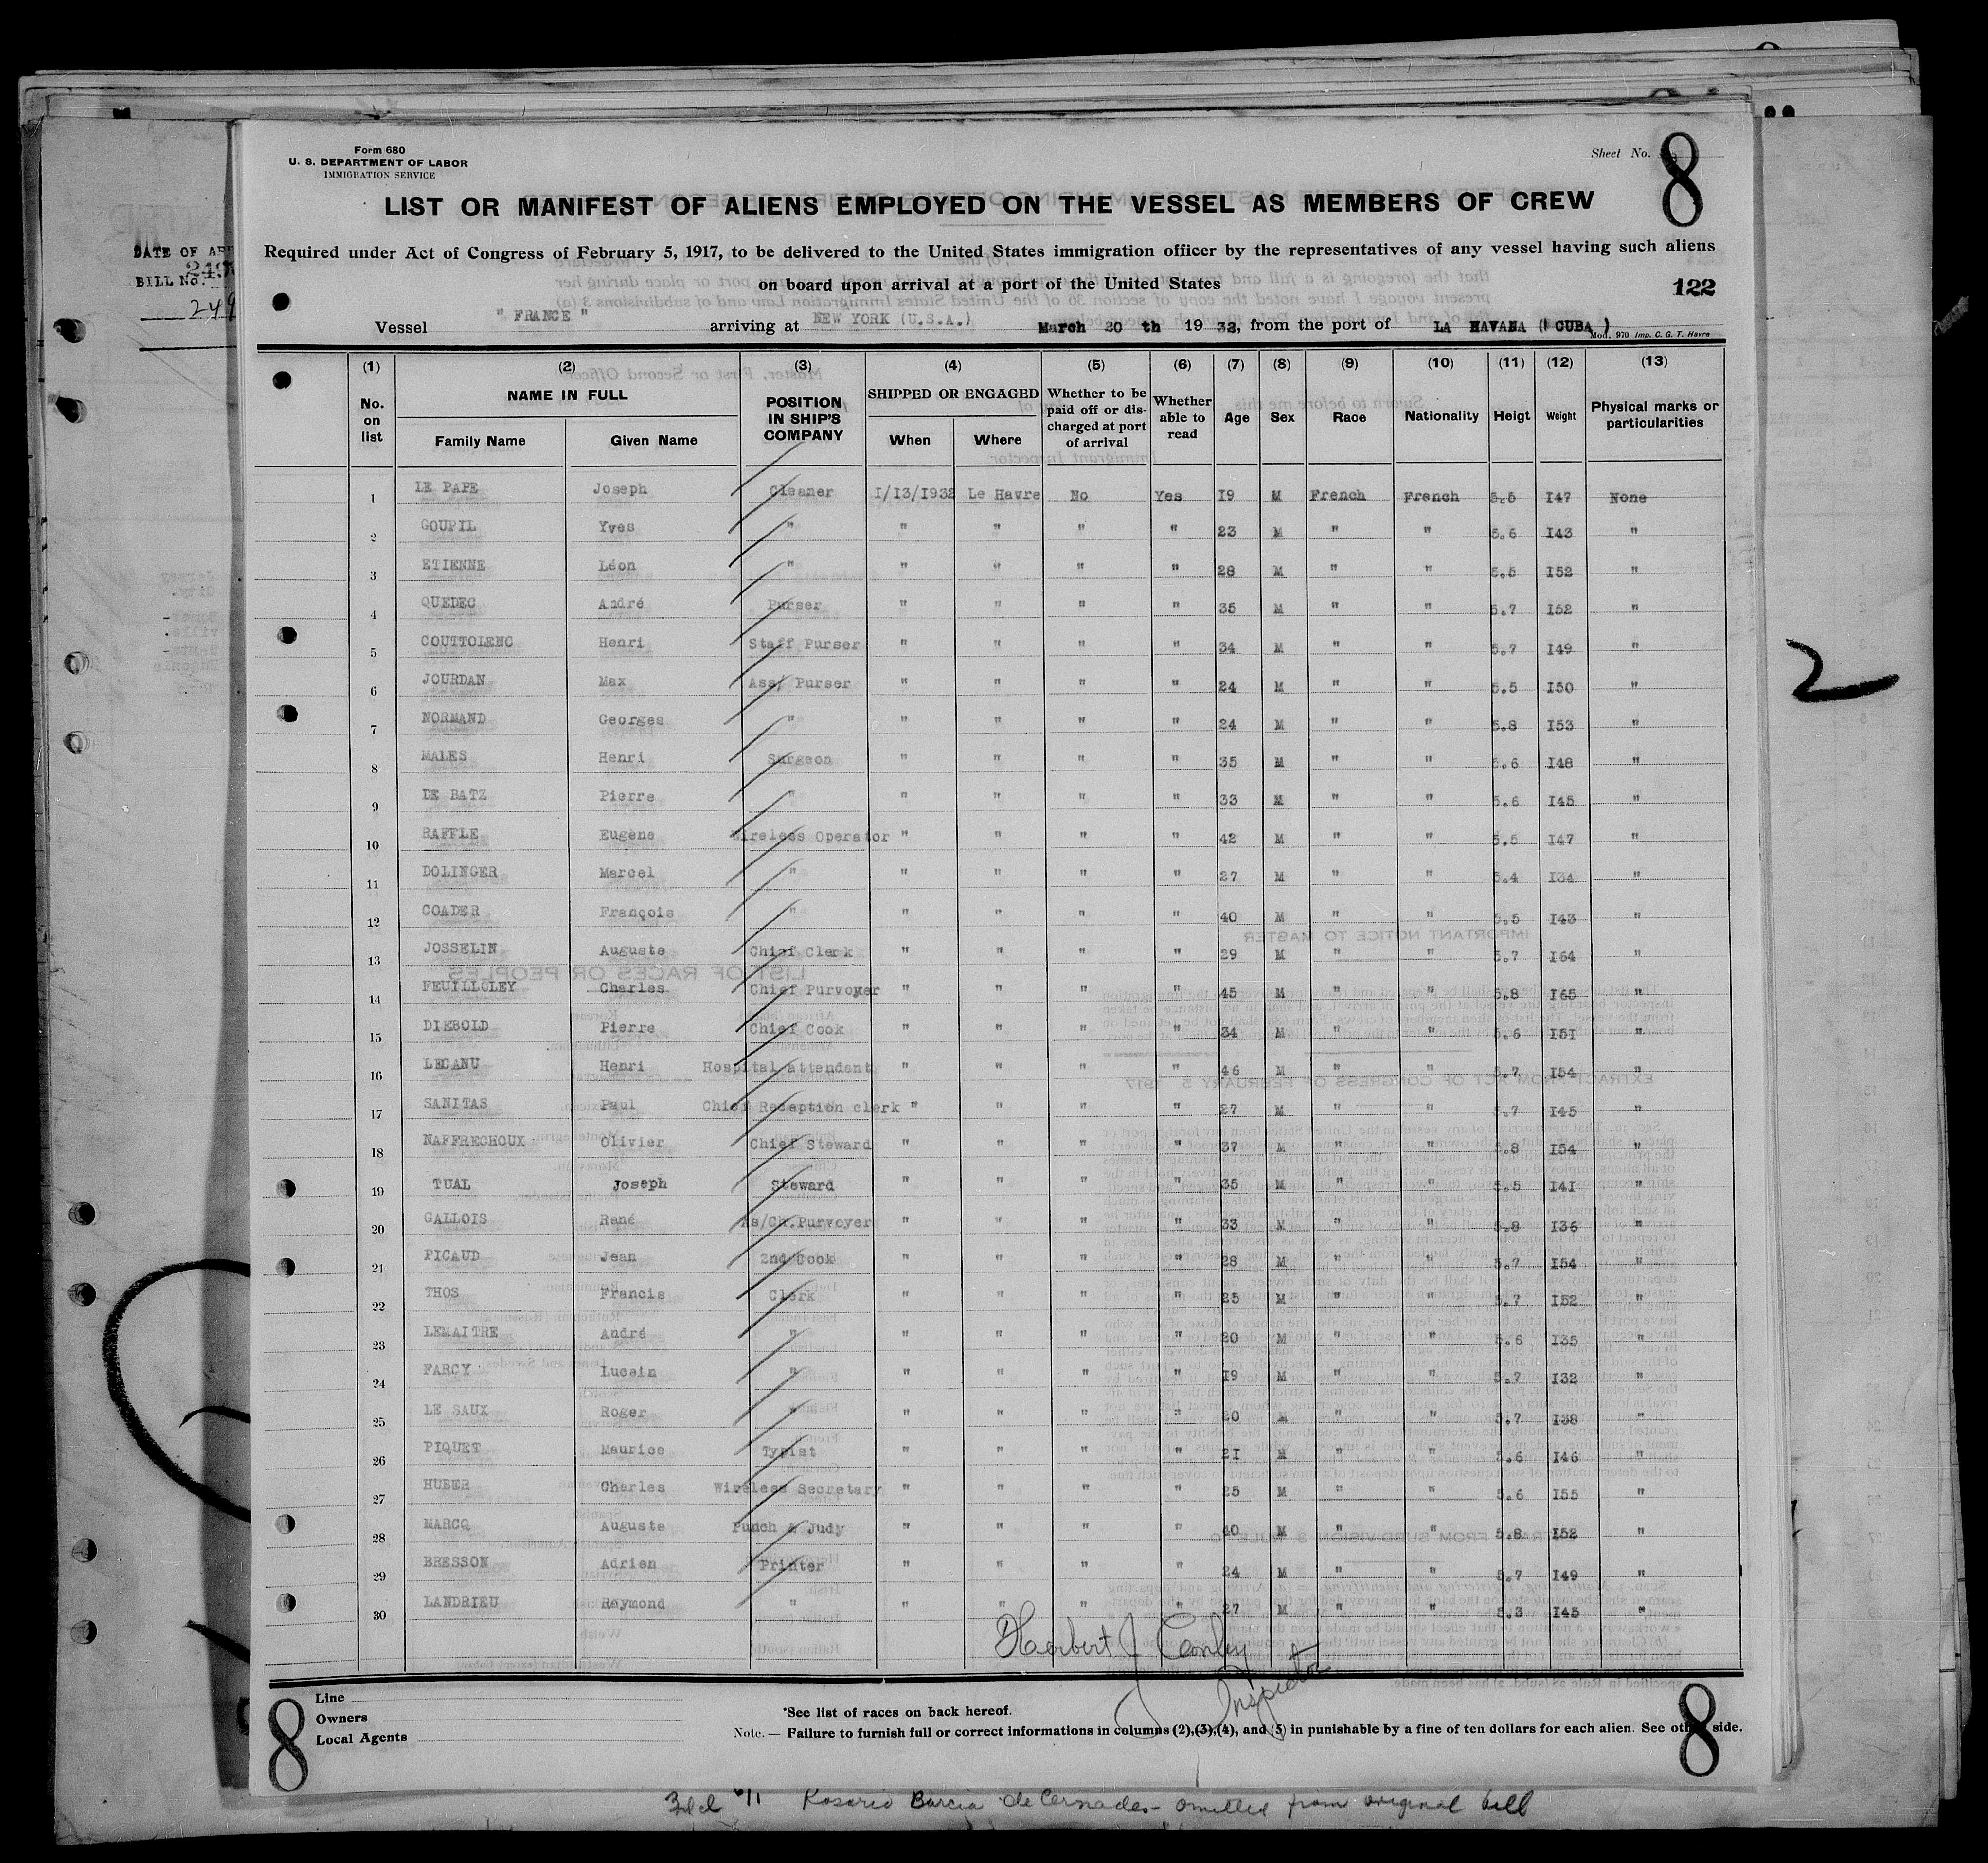 Form 680
U. S. DEPARTMENT OF LABOR
IMMIGRATION SERVICE
Sheet No.
8
LIST OR MANIFEST OF ALIENS EMPLOYED ON THE VESSEL AS MEMBERS OF CREW
Required under Act of Congress of February 5, 1917, to be delivered to the United States immigration officer by the representatives of any vessel having such aliens
on board upon arrival at a port of the United States
122
Vessel " FRANCE " arriving at NEW YORK (U.S.A.) March 20 th 19 32, from the port of LA HAVANA ( CUBA )
Mod. 970 Imp. C. G. T. Havre
DATE OF
BILL No.
249
2
(1) (2) (3) (4) (5) (6) (7) (8) (9) (10) (11) (12) (13)
No. on list NAME IN FULL Family Name Given Name POSITION IN SHIP'S COMPANY SHIPPED OR ENGAGED When Where Whether to be paid off or dis-charged at port of arrival Whether able to read Age Sex Race Nationality Heigt Weight Physical marks or particularities
1 LE PAPE Joseph Cleaner I/I3/I932 Le Havre No Yes I9 M French French 5.5 I47 None
2 GOUPIL Yves " " " " " 23 M " " 5.6 I43 "
3 ETIENNE Léon " " " " " 28 M " " 5.5 I52 "
4 QUEDEC André Purser " " " " 35 M " " 5.7 I52 "
5 COUTTOLENC Henri Staff Purser " " " " 34 M " " 5.7 I49 "
6 JOURDAN Max Ass/ Purser " " " " 24 M " " 5.5 I50 "
7 NORMAND Georges " " " " " 24 M " " 5.8 I53 "
8 MALES Henri Surgeon " " " " 35 M " " 5.6 I48 "
9 DE BATZ Pierre " " " " " 33 M " " 5.6 I45 "
10 RAFFLE Eugène Wireless Operator " " " " 42 M " " 5.5 I47 "
11 DOLINGER Marcel " " " " " 27 M " " 5.4 I34 "
12 COADER François " " " " " 40 M " " 5.5 I43 "
13 JOSSELIN Auguste Chief Clerk " " " " 29 M " " 5.7 I64 "
14 FEUILLOLEY Charles Chief Purvoyer " " " " 45 M " " 5.8 I65 "
15 DIEBOLD Pierre Chief Cook " " " " 34 M " " 5.6 I5I "
16 LECANU Henri Hospital attendent " " " " 46 M " " 5.7 I54 "
17 SANITAS Paul Chief Reception clerk " " " " 27 M " " 5.7 I45 "
18 NAFFRECHOUX Olivier Chief Steward " " " " 37 M " " 5.8 I54 "
19 TUAL Joseph Steward " " " " 35 M " " 5.5 I4I "
20 GALLOIS René As/Ch.Purvoyer " " " " 33 M " " 5.8 I36 "
21 PICAUD Jean 2nd Cook " " " " 28 M " " 5.7 I54 "
22 THOS Francis Clerk " " " " 25 M " " 5.7 I52 "
23 LEMAITRE André " " " " " 20 M " " 5.6 I35 "
24 FARCY Lucein " " " " " I9 M " " 5.7 I32 "
25 LE SAUX Roger " " " " " 20 M " " 5.7 I38 "
26 PIQUET Maurice Typist " " " " 2I M " " 5.6 I46 "
27 HUBER Charles Wireless Secretary " " " " 25 M " " 5.6 I55 "
28 MARCQ Auguste Punch & Judy " " " " 40 M " " 5.8 I52 "
29 BRESSON Adrien Printer " " " " 24 M " " 5.7 I49 "
30 LANDRIEU Raymond " " " " " 27 M " " 5.3 I45 "
Herbert J Conley
Inspector
Line
Owners
Local Agents
*See list of races on back hereof.
Note. — Failure to furnish full or correct informations in columns (2),(3),(4), and (5) in punishable by a fine of ten dollars for each alien. See other side.
8
8
Rosario Barcia de Cernades - omitted from original bill